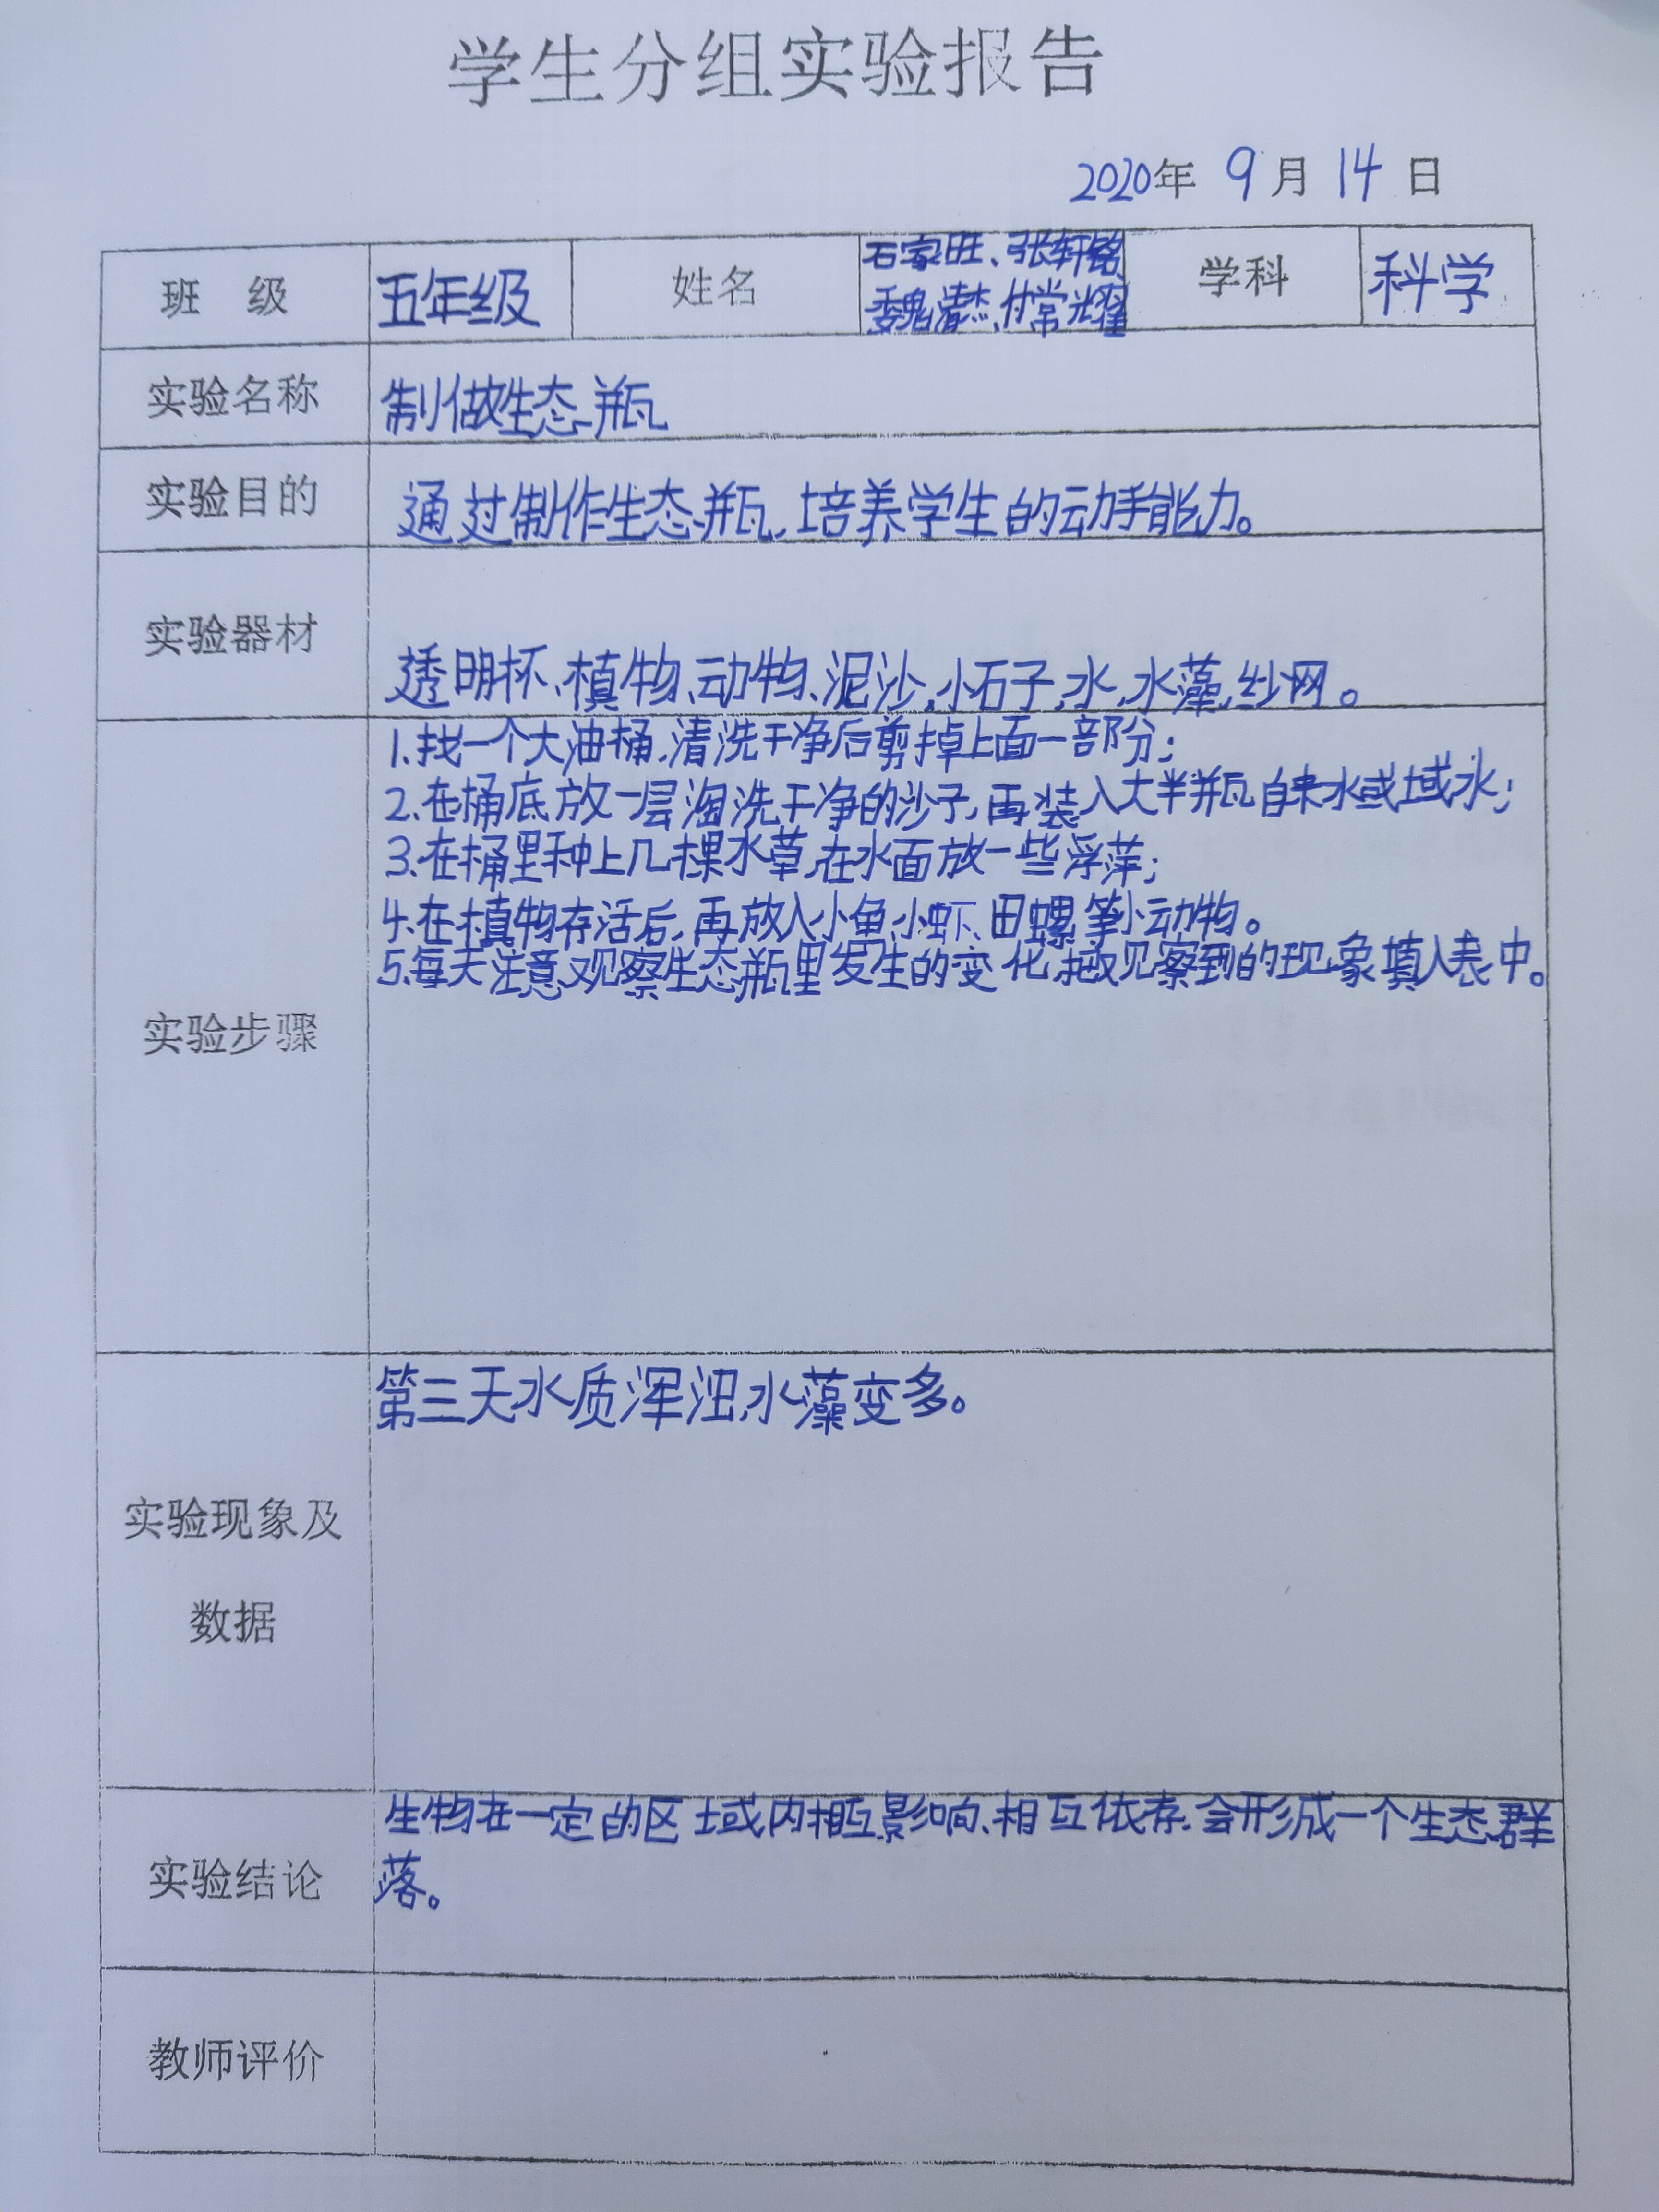 学生分组实验报告
2020年 9月 14日
班 级 五年级 姓名 石家旺、张轩铭、魏清杰、付常光耀 学科 科学
实验名称 制做生态瓶
实验目的 通过制作生态瓶,培养学生的动手能力。
实验器材 透明杯、植物、动物、泥沙,小石子,水,水藻,纱网。
实验步骤
1.找一个大油桶,清洗干净后剪掉上面一部分;
2.在桶底放一层淘洗干净的沙子,再装入大半瓶自来水或域水;
3.在桶里种上几棵水草,在水面放一些浮萍;
4.在植物存活后,再放入小鱼、小虾、田螺等小动物。
5.每天注意观察生态瓶里发生的变化,把观察到的现象填入表中。
实验现象及
数据
第三天水质浑浊,水藻变多。
实验结论
生物在一定的区域内相互影响、相互依存.会形成一个生态群
落。
教师评价